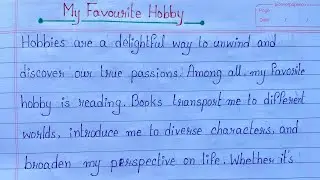 My Favourite Hobby
Hobbies are a delightful way to unwind and
discover our true passions. Among all, my favorite
hobby is reading. Books transport me to different
worlds, introduce me to diverse characters, and
broaden my perspective on life. Whether it's